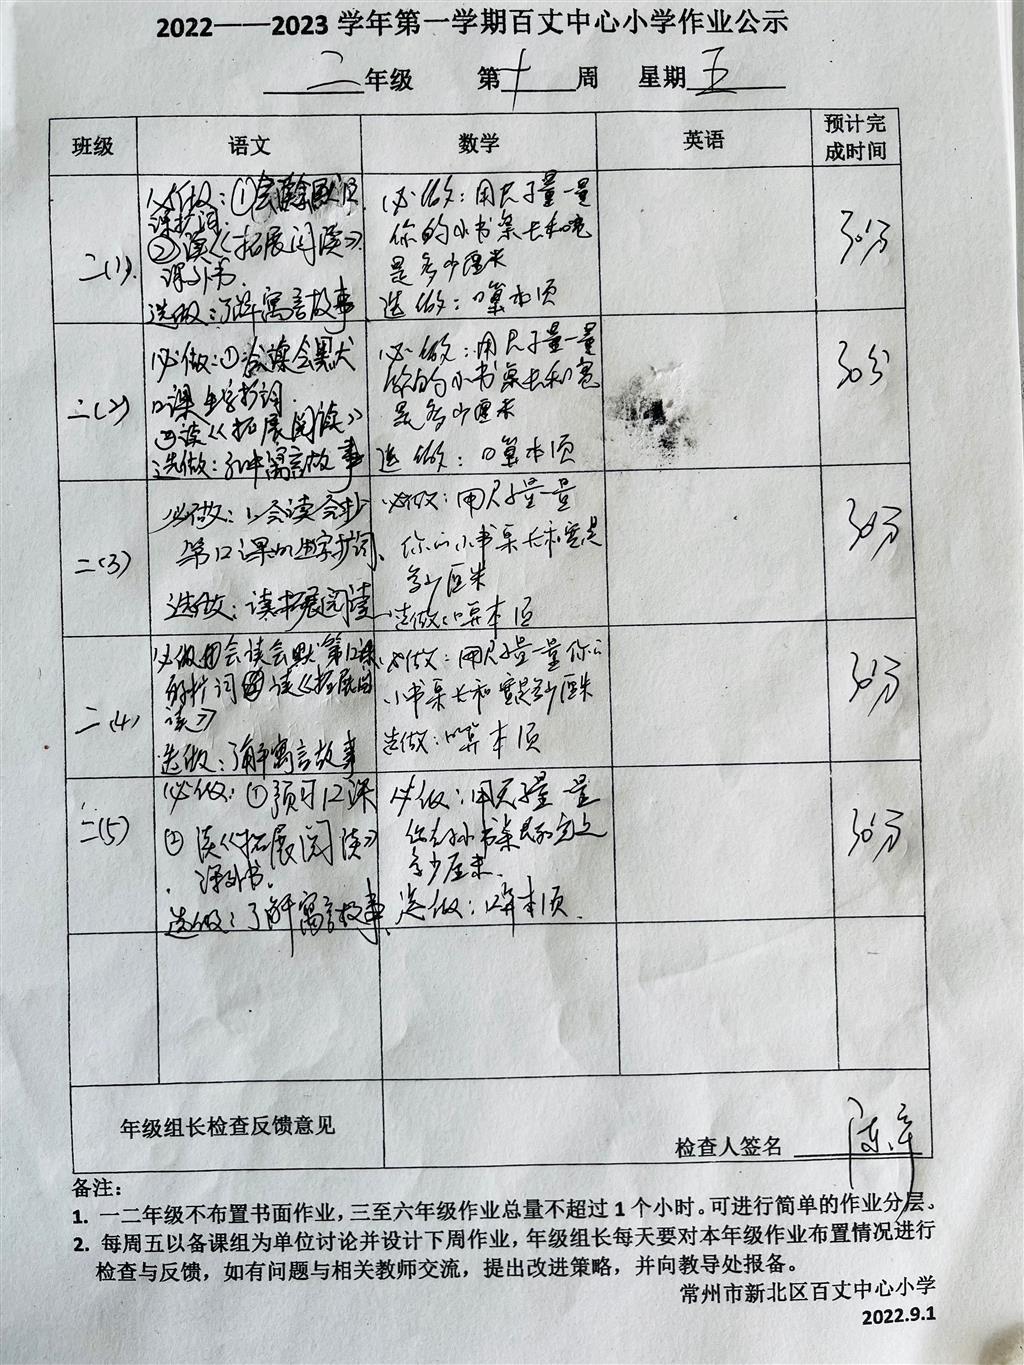 2022——2023学年第一学期百丈中心小学作业公示
二年级 第十周 星期五
班级 语文 数学 英语 预计完成时间
二(1)
必做：①会读会默12
课扩词.
②读《拓展阅读》
课外书.
选做：了解寓言故事
必做：用尺子量一量
你的小书桌长和宽
是多少厘米
选做：口算本1页
30分
二(2)
必做：①会读会默
12课生字扩词.
②读《拓展阅读》
选做：了解寓言故事
必做：用尺子量一量
你的小书桌长和宽
是多少厘米
选做：口算本1页
30分
二(3)
必做：1、会读会抄
第12课的生字扩词、
选做：读拓展阅读
必做：用尺子量一量
你的小书桌长和宽是
多少厘米
选做：口算本1页
30分
二(4)
必做：①会读会默第12课
的扩词②读《拓展阅
读》
选做：了解寓言故事
必做：用尺子量一量你的
小书桌长和宽是多少厘米
选做：口算本1页
30分
二(5)
必做：①预习12课
②读《拓展阅读》
课外书.
选做：了解寓言故事.
必做：用尺子量一量
你的小书桌长和宽是
多少厘米.
选做：口算本1页.
30分
年级组长检查反馈意见
检查人签名
备注：
1. 一二年级不布置书面作业，三至六年级作业总量不超过1个小时。可进行简单的作业分层。
2. 每周五以备课组为单位讨论并设计下周作业，年级组长每天要对本年级作业布置情况进行
检查与反馈，如有问题与相关教师交流，提出改进策略，并向教导处报备。
常州市新北区百丈中心小学
2022.9.1